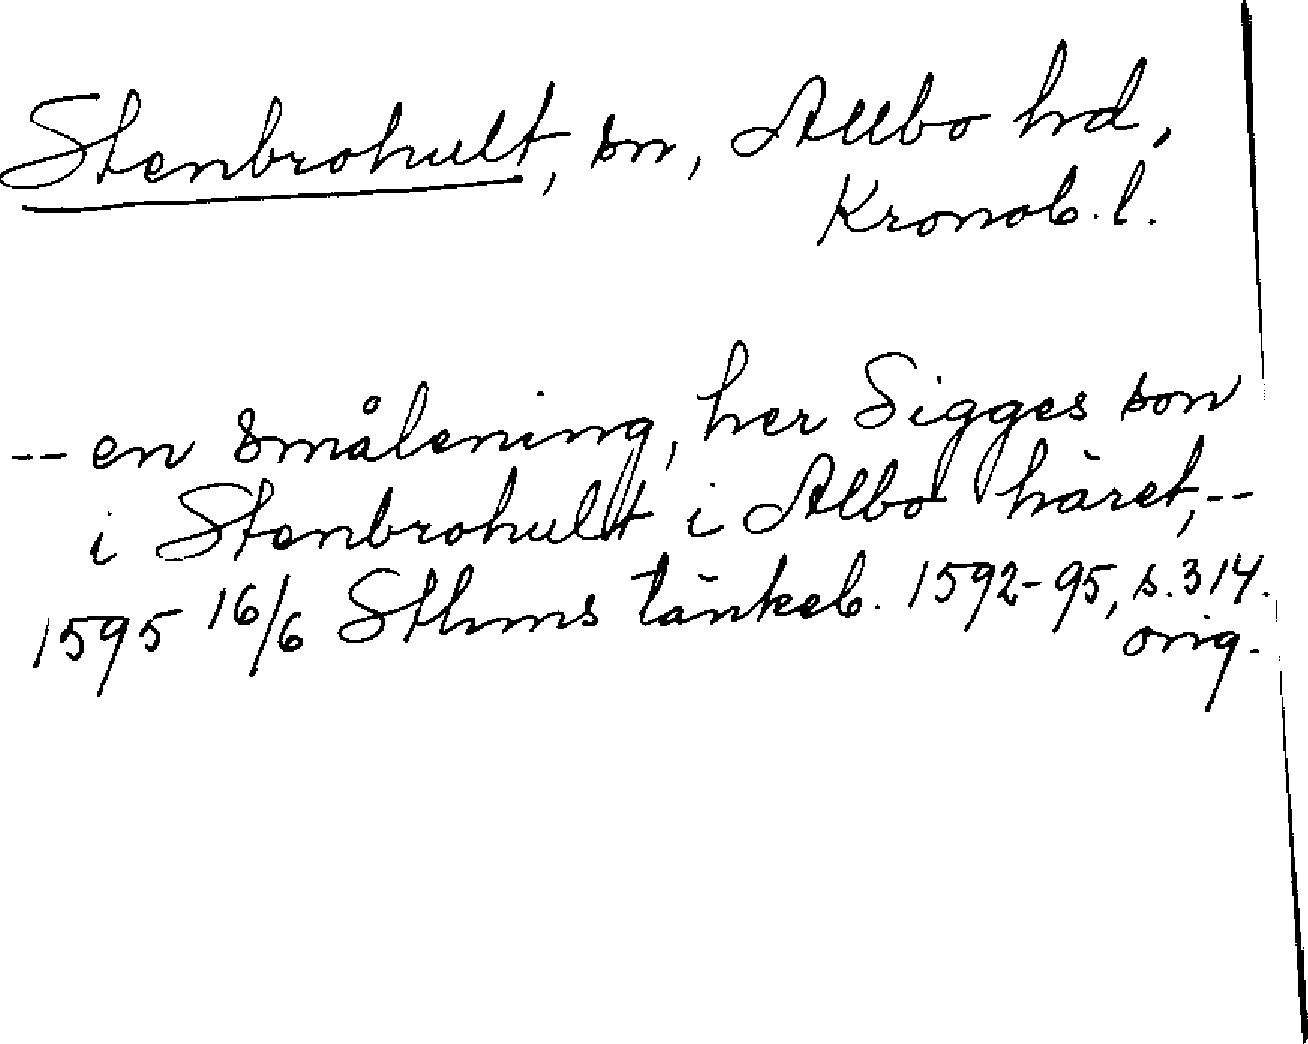 Stenbrohult, sn, Allbo hd,
Kronob. l.
-- en smålening, her Sigges son
i Stenbrohult i Albo häret, --
1595 16/6 Sthms tänkeb. 1592-95, s. 314.
orig.